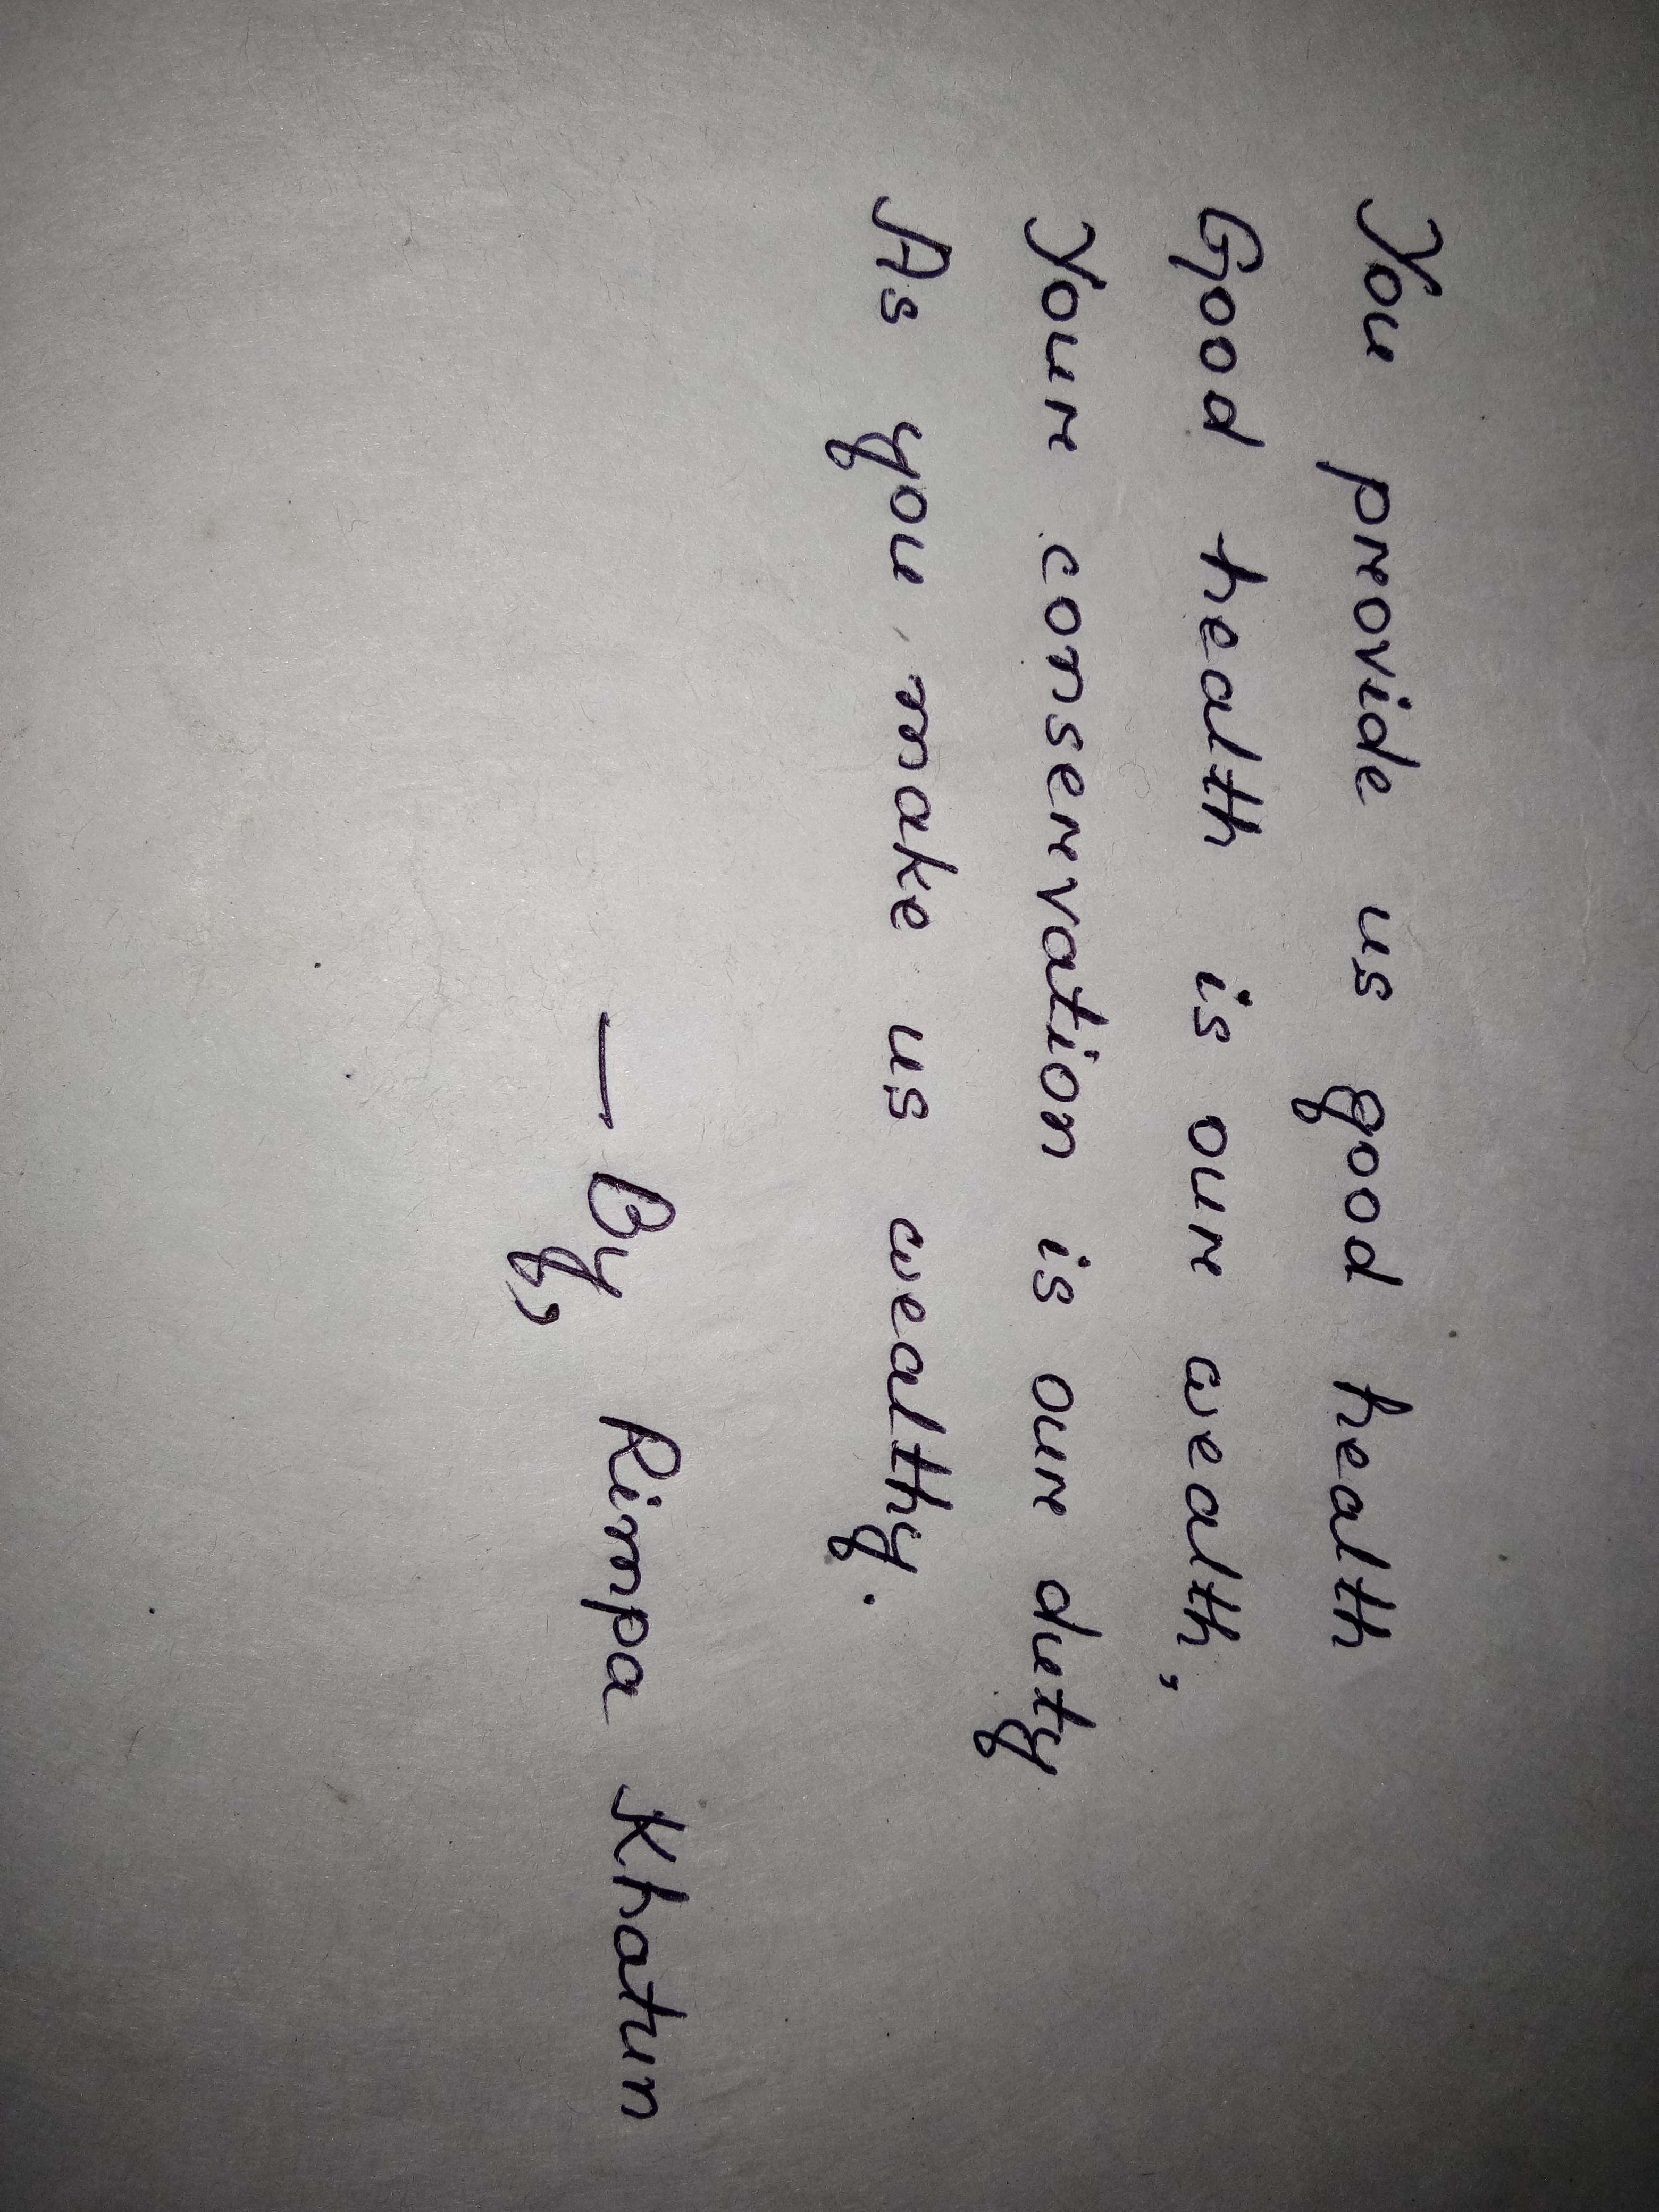 You provide us good health
Good health is our wealth,
Your conservation is our duty
As you make us wealthy.
— By, Rimpa Khatun